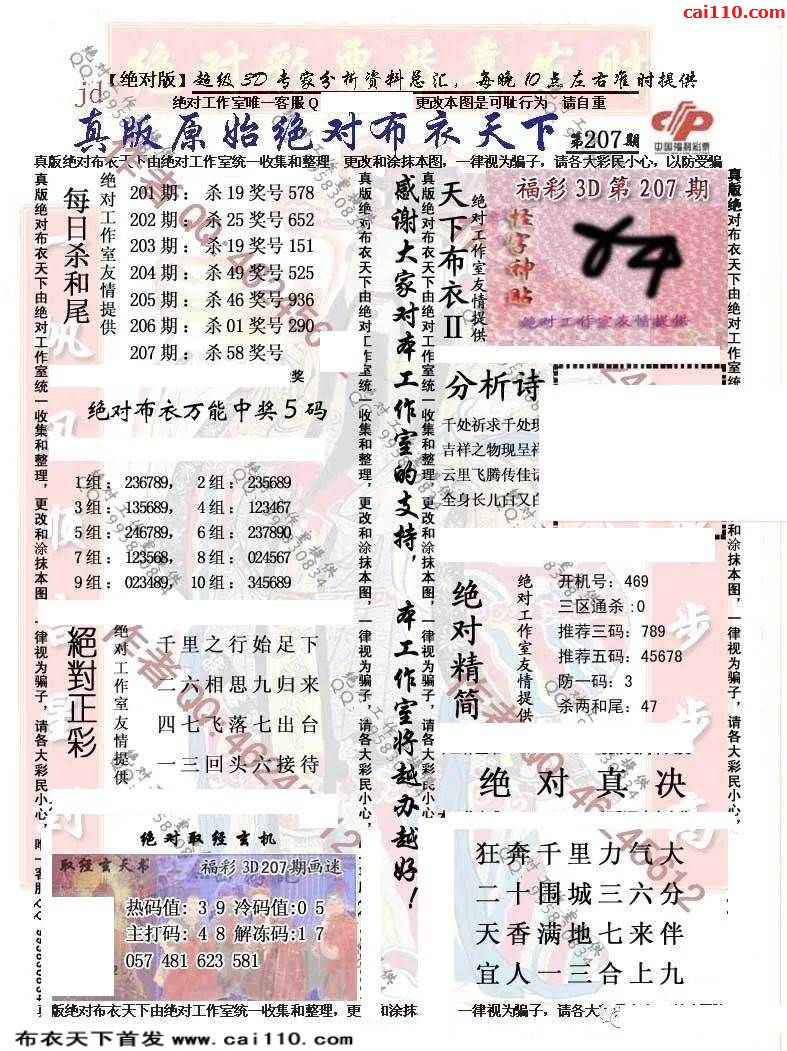 cai110.com
【绝对版】超级3D专家分析资料总汇，每晚10点左右准时提供
jd
绝对工作室唯一客服Q
更改本图是可耻行为 请自重
真版原始绝对布衣天下
第207期
中国福利彩票
真版绝对布衣天下由绝对工作室统一收集和整理，更改和涂抹本图，一律视为骗子，请各大彩民小心，以防受骗
每日杀和尾
绝对工作室友情提供
201期：杀19奖号578
202期：杀25奖号652
203期：杀19奖号151
204期：杀49奖号525
205期：杀46奖号936
206期：杀01奖号290
207期：杀58奖号
奖
绝对布衣万能中奖5码
1组：236789， 2组：235689
3组：135689， 4组：123467
5组：246789， 6组：237890
7组：123568， 8组：024567
9组：023489， 10组：345689
絕對正彩
绝对工作室友情提供
千里之行始足下
二六相思九归来
四七飞落七出台
一三回头六接待
绝对取经玄机
取经玄天书
福彩3D207期画迷
热码值：39冷码值：05
主打码：48解冻码：17
057 481 623 581
感谢大家对本工作室的支持，本工作室将越办越好！
天下布衣II
绝对工作室友情提供
福彩3D第207期
怪字神贴
绝对工作室友情提供
分析诗
千处祈求千处现
吉祥之物现呈祥
云里飞腾传佳话
全身长儿白又白
绝对精简
绝对工作室友情提供
开机号：469
三区通杀：0
推荐三码：789
推荐五码：45678
防一码：3
杀两和尾：47
绝对真决
狂奔千里力气大
二十围城三六分
天香满地七来伴
宜人一三合上九
真版绝对布衣天下由绝对工作室统一收集和整理，更改和涂抹本图，一律视为骗子，请各大彩民小心，唯一客服
真版绝对布衣天下由绝对工作室统一收集和整理，更改和涂抹本图，一律视为骗子，请各大彩民小心，
真版绝对布衣天下由绝对工作室统一收集和整理，更改和涂抹本图，一律视为骗子，请各大彩民小心，
真版绝对布衣天下由绝对工作室统一
和涂抹本图，一律视为骗子，请各大彩民小心，
真版绝对布衣天下由绝对工作室统一收集和整理，更
和涂抹
一律视为骗子，请各大
布衣天下首发 www.cai110.com